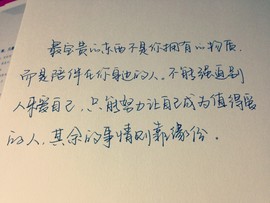 最宝贵的东西不是你拥有的物质,
而是陪伴在你身边的人。不能强迫别
人来爱自己,只能努力让自己成为值得爱
的人,其余的事情则靠缘份。